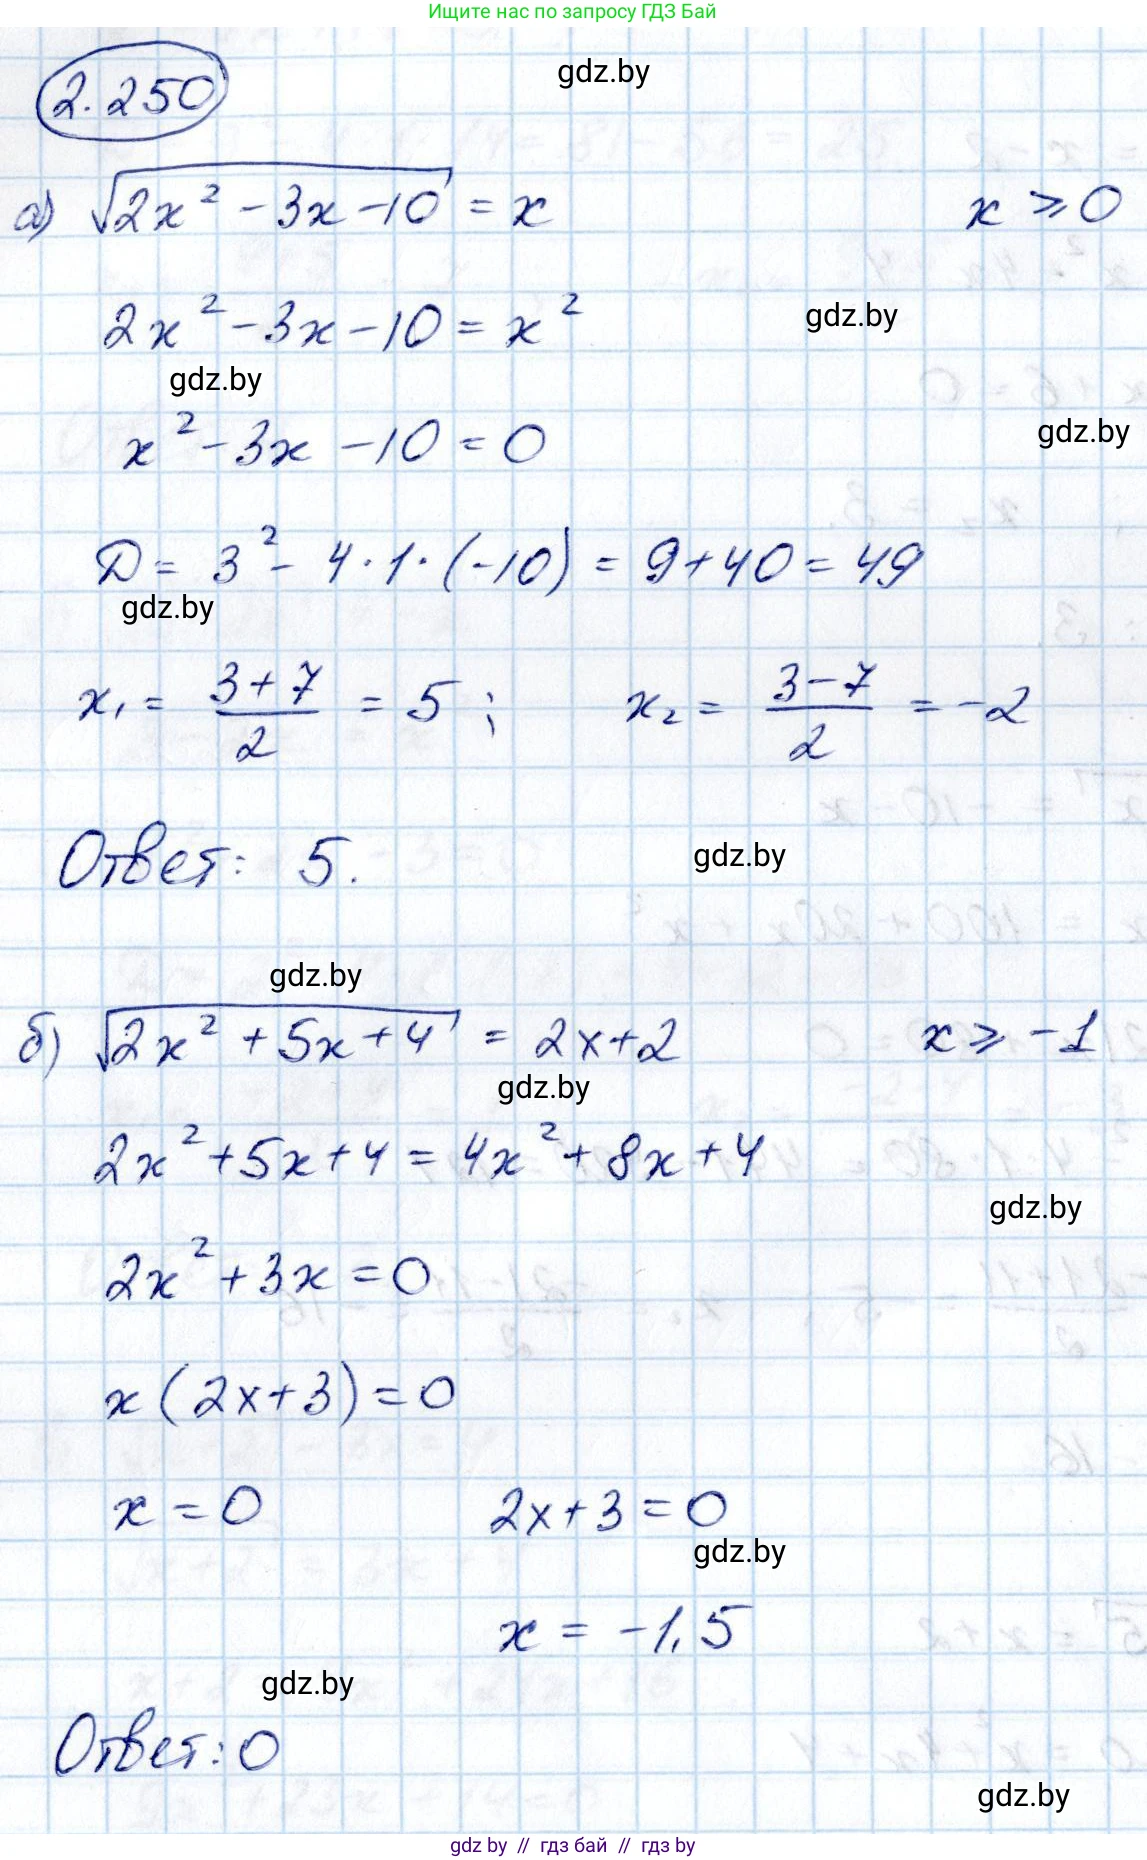 Ищите нас по запросу ГДЗ Бай
2.250
gdz.by
а) √(2x² - 3x - 10) = x   x ⩾ 0
2x² - 3x - 10 = x²
gdz.by
gdz.by
x² - 3x - 10 = 0
gdz.by
Д = 3² - 4·1·(-10) = 9 + 40 = 49
gdz.by
x₁ = (3+7)/2 = 5 ;   x₂ = (3-7)/2 = -2
Ответ: 5.
gdz.by
gdz.by
б) √(2x² + 5x + 4) = 2x + 2   x ⩾ -1
gdz.by
2x² + 5x + 4 = 4x² + 8x + 4
gdz.by
2x² + 3x = 0
x (2x + 3) = 0
x = 0   2x + 3 = 0
gdz.by
x = -1,5
gdz.by
Ответ: 0
gdz.by
gdz by // гдз бай // гдз by